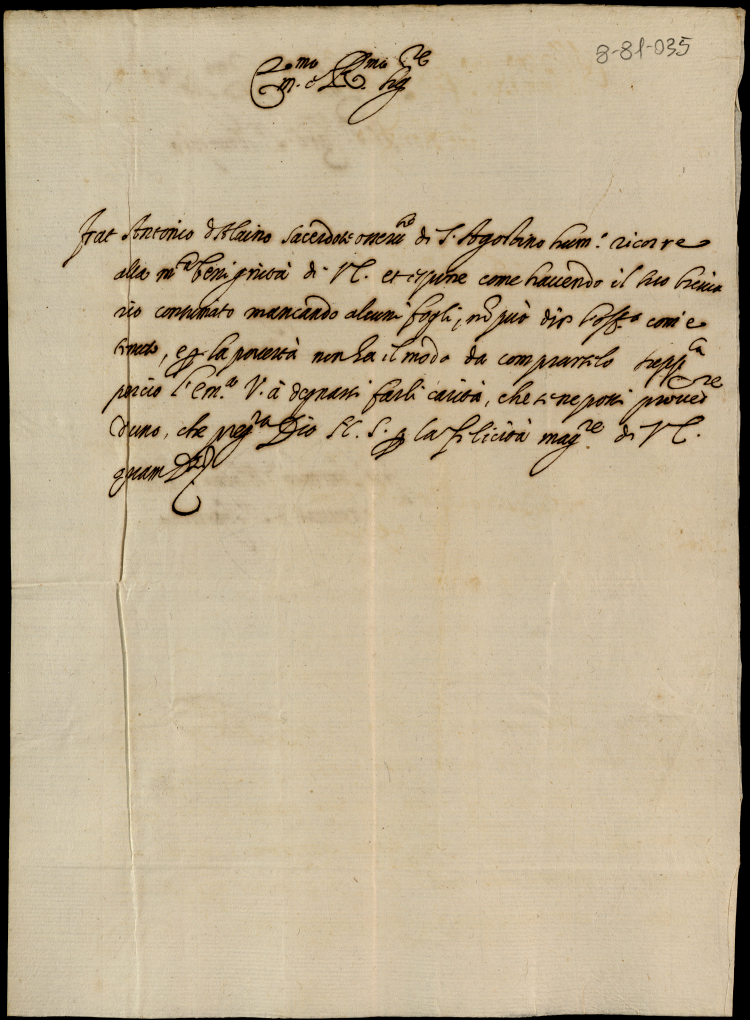 8-81-035
Em.mo e R.mo Sig.re
Frat Antonio sacerdote osseru.te di S. Agostino hum.e ricorre
alla m.ta benignità di VE. et espone come hauendo il suo breuia
rio consumato mancando alcuni fogli, nõ può dir l'off.o com'è
tenuto, e p la pouertà non ha il modo da comprarselo supp.ca
perciò l'Em.za V. à degnarsi farli carità, che se ne possi proued
d'uno, che preg.rà Dio N. S. p la felicità magg.re di VE.
quam D.s